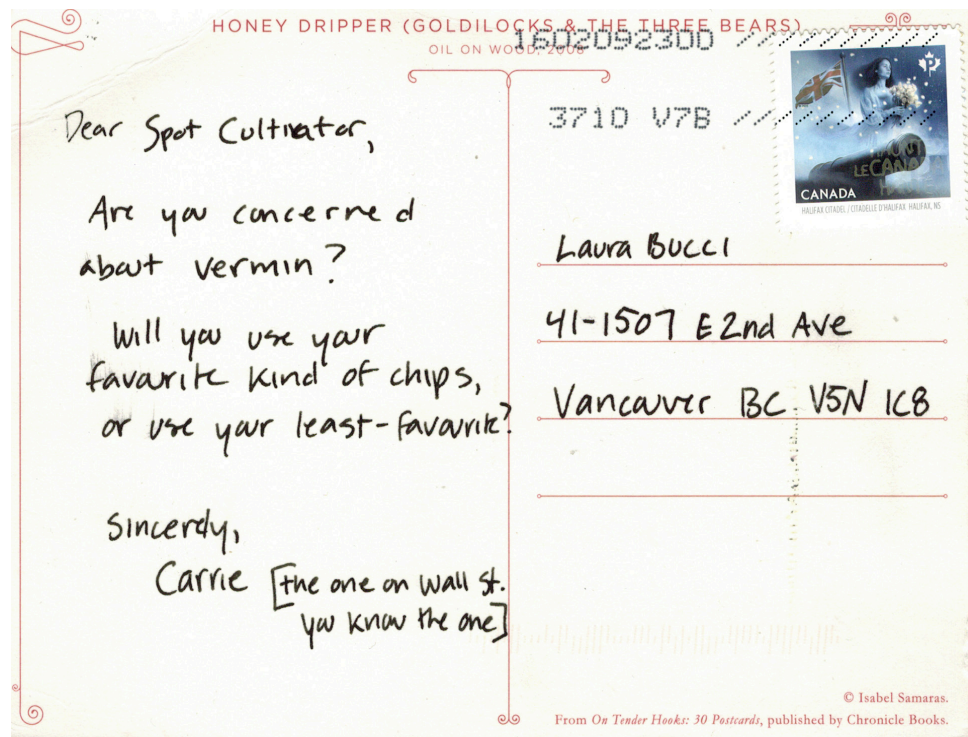 HONEY DRIPPER (GOLDILOCKS & THE THREE BEARS)
OIL ON WOOD, 2008
1602092300
3710 V7B
CANADA
HALIFAX CITADEL / CITADELLE D'HALIFAX HALIFAX, NS
Dear Spot Cultivator,
Are you concerned
about vermin?
Will you use your
favourite kind of chips,
or use your least-favourite?
Sincerely,
Carrie [the one on Wall St.
you know the one]
Laura Bucci
41-1507 E 2nd Ave
Vancouver BC V5N 1C8
© Isabel Samaras.
From On Tender Hooks: 30 Postcards, published by Chronicle Books.